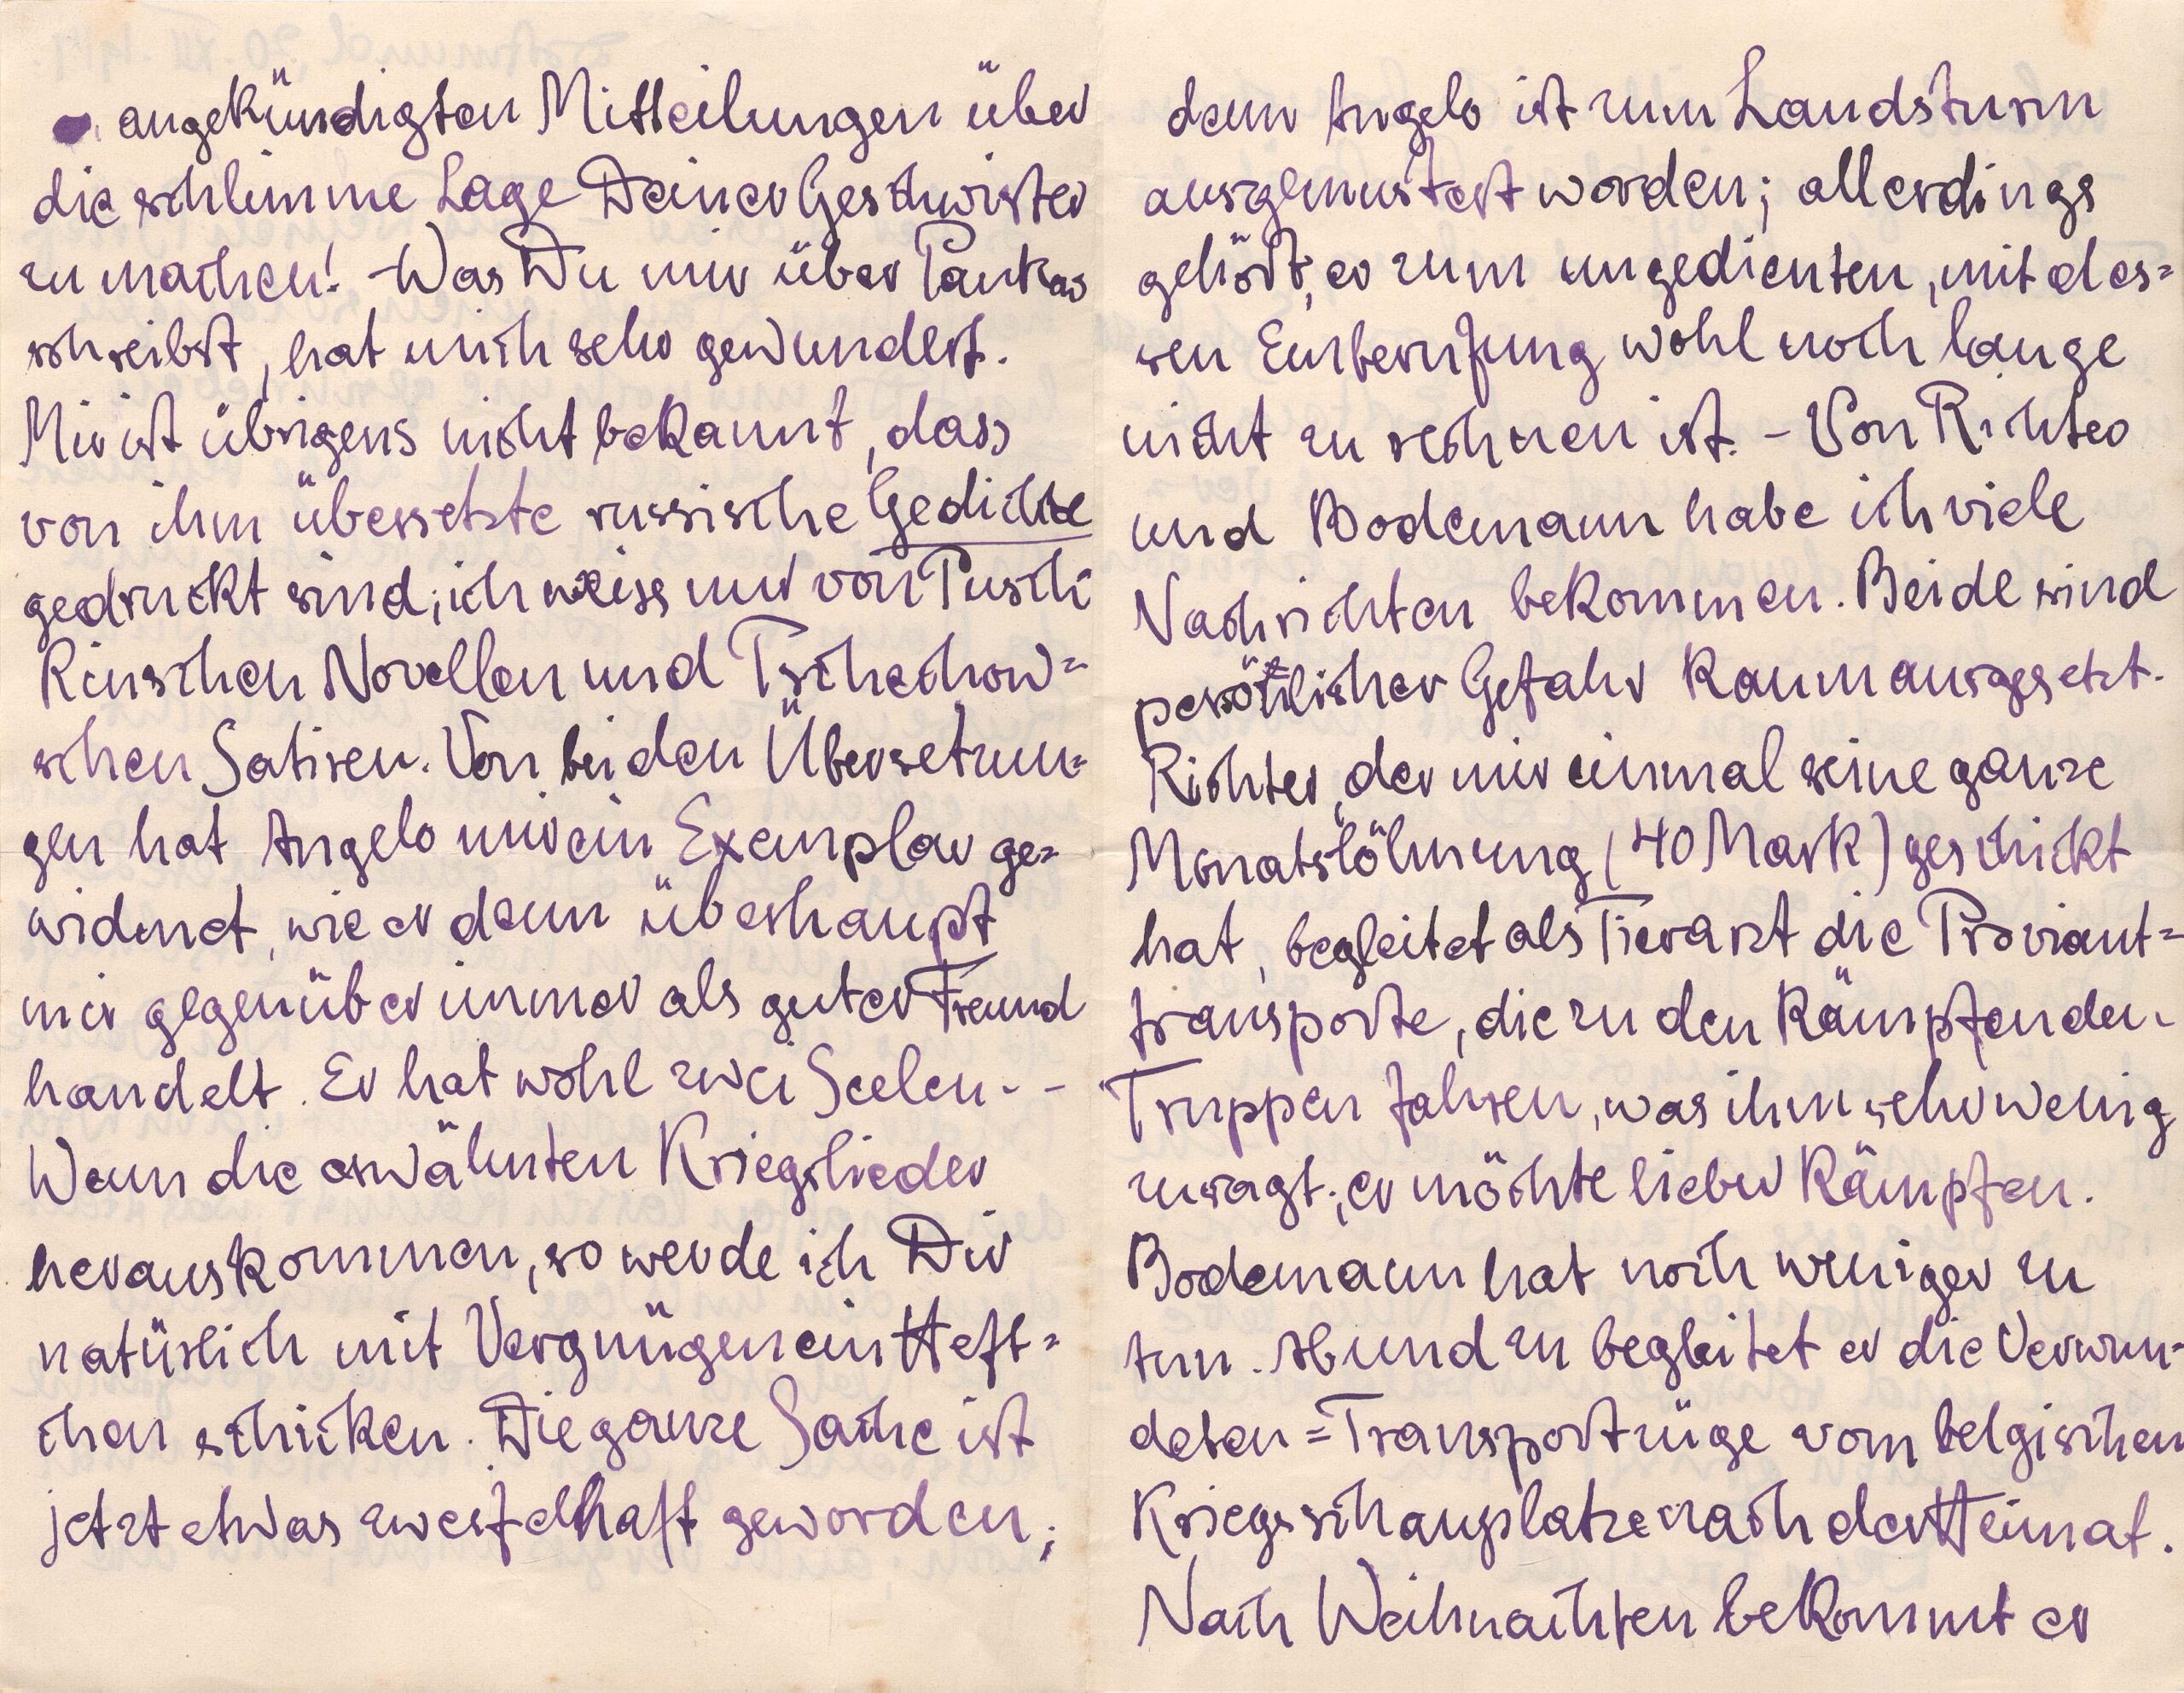 angekündigten Mitteilungen über
die schlimme Lage Deiner Geschwister
zu machen! - Was Du mir über Pankas
schreibst, hat mich sehr gewundert.
Mir ist übrigens nicht bekannt, dass
von ihm übersetzte russische Gedichte
gedruckt sind; ich weiss nur von Pusch-
kinschen Novellen und Tschechow=
schen Satiren. Von beiden Übersetzun=
gen hat Angelo mir ein Exemplar ge=
widmet, wie er denn überhaupt
mir gegenüber immer als guter Freund
handelt. Er hat wohl zwei Seelen. -
Wenn die erwähnten Kriegslieder
herauskommen, so werde ich Dir
natürlich mit Vergnügen ein Heft=
chen schicken. Die ganze Sache ist
jetzt etwas zweifelhaft geworden;
denn Angelo ist zum Landsturm
ausgemustert worden; allerdings
gehört, er zum ungedienten, mit des=
sen Einberufung wohl noch lange
nicht zu rechnen ist. - Von Richter
und Bodemann habe ich viele
Nachrichten bekommen. Beide sind
persönlicher Gefahr kaum ausgesetzt.
Richter, der mir einmal seine ganze
Monatslöhnung (40 Mark) geschickt
hat, begleitet als Tierarzt die Proviant=
transporte, die zu den kämpfenden
Truppen fahren, was ihm sehr wenig
zusagt; er möchte lieber kämpfen.
Bodemann hat noch weniger zu
tun. Ab und zu begleitet er die Verwun-
deten=Transportzüge vom belgischen
Kriegsschauplatze nach der Heimat.
Nach Weihnachten bekommt er